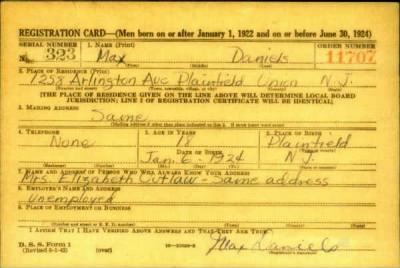 REGISTRATION CARD—(Men born on or after January 1, 1922 and on or before June 30, 1924)
SERIAL NUMBER 1. NAME (Print) ORDER NUMBER
No. 323 Max Daniels 11707
(First) (Middle) (Last)
2. PLACE OF RESIDENCE (Print)
1258 Arlington Ave Plainfield Union N.J.
(Number and street) (Town, township, village, or city) (County) (State)
[THE PLACE OF RESIDENCE GIVEN ON THE LINE ABOVE WILL DETERMINE LOCAL BOARD
JURISDICTION; LINE 2 OF REGISTRATION CERTIFICATE WILL BE IDENTICAL]
3. MAILING ADDRESS
Same
[Mailing address if other than place indicated on line 2. If same insert word same]
4. TELEPHONE 5. AGE IN YEARS 6. PLACE OF BIRTH
None 18 Plainfield
DATE OF BIRTH
Jan. 6 - 1924 N.J.
(Exchange) (Number) (Mo.) (Day) (Yr.) (State or country)
7. NAME AND ADDRESS OF PERSON WHO WILL ALWAYS KNOW YOUR ADDRESS
Mrs. Elizabeth Outlaw - Same address
8. EMPLOYER'S NAME AND ADDRESS
Unemployed
9. PLACE OF EMPLOYMENT OR BUSINESS
(Number and street or R. F. D. number) (Town) (County) (State)
I AFFIRM THAT I HAVE VERIFIED ABOVE ANSWERS AND THAT THEY ARE TRUE.
D. S. S. Form 1
(Revised 6-9-42) (over) Max Daniels